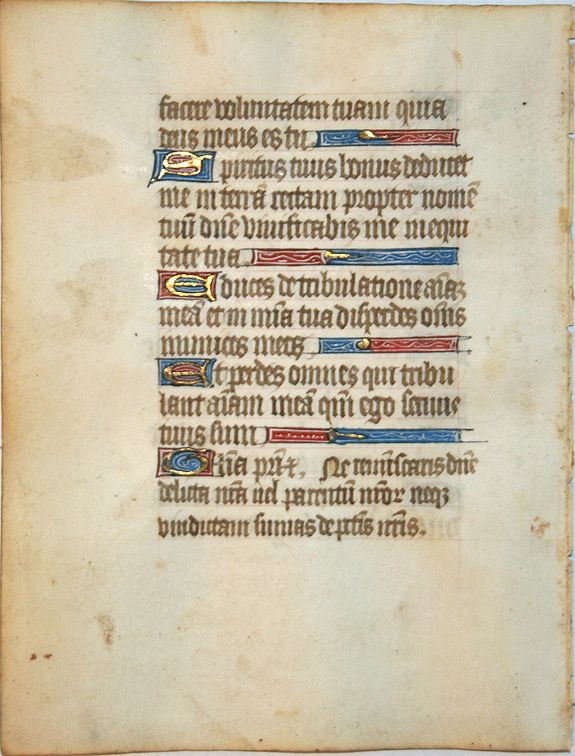 facere voluntatem tuam quia
deus meus es tu
Spiritus tuus bonus deducet
me in terrā rectam propter nomē
tuū dn̄e vivificabis me in equi
tate tua
Educes de tribulatione aīaʒ
meā et in mīa tua disperdes om̄s
inimicos meos
Et perdes omnes qui tribu
lant aīam meā qm̄ ego servus
tuus sum
Gl̄ia pr̄i ⁊. Ne reminiscaris dn̄e
delicta nr̄a vel parentū nr̄or neqʒ
vindictam sumas de pctīs nr̄is.